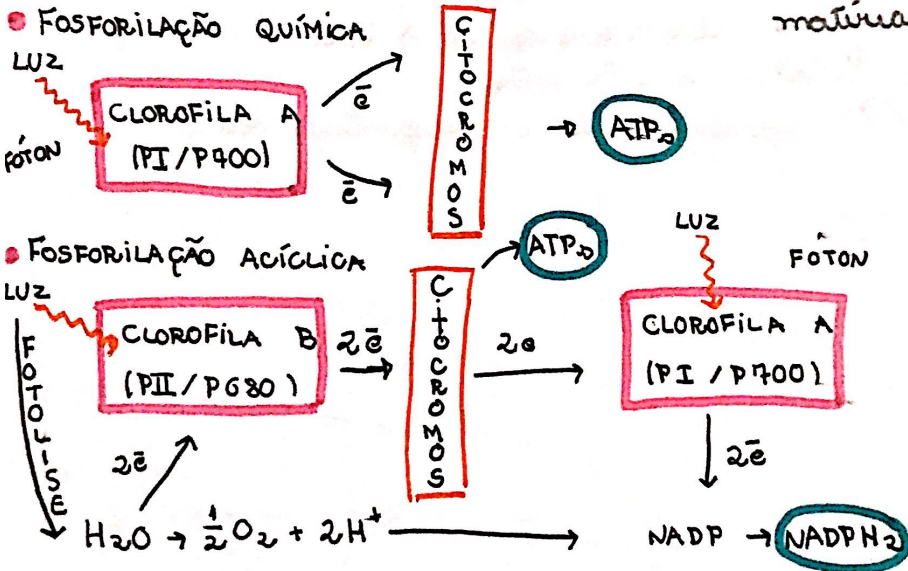 • FOSFORILAÇÃO QUÍMICA
matéria
LUZ
FÓTON
CLOROFILA A
(PI / P700)
ē
ē
CITOCROMOS
→ ATP
• FOSFORILAÇÃO ACÍCLICA
LUZ
FOTOLISE
CLOROFILA B
(PII / P680)
2ē
2ē
CITOCROMOS
ATP
2e
LUZ
FÓTON
CLOROFILA A
(PI / P700)
2ē
H2O → 1/2 O2 + 2H+
NADP → NADPH2